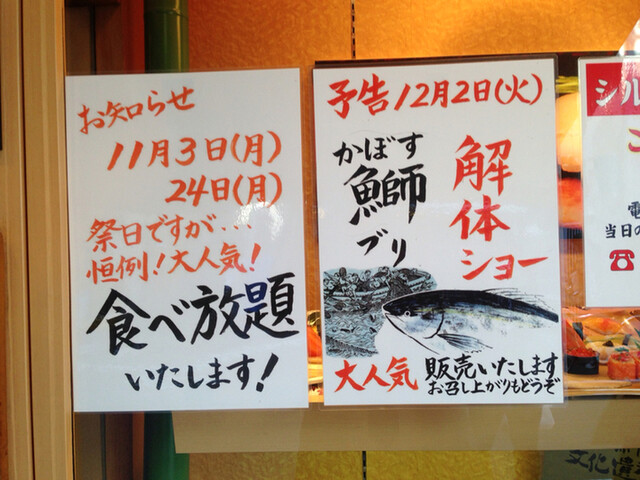 お知らせ
11月3日(月)
24日(月)
祭日ですが...
恒例!大人気!
食べ放題
いたします!
予告12月2日(火)
かぼす
鰤師
ブリ
解体
ショー
大人気
販売いたします
お召し上がりもどうぞ
シル
電
当日の
文化